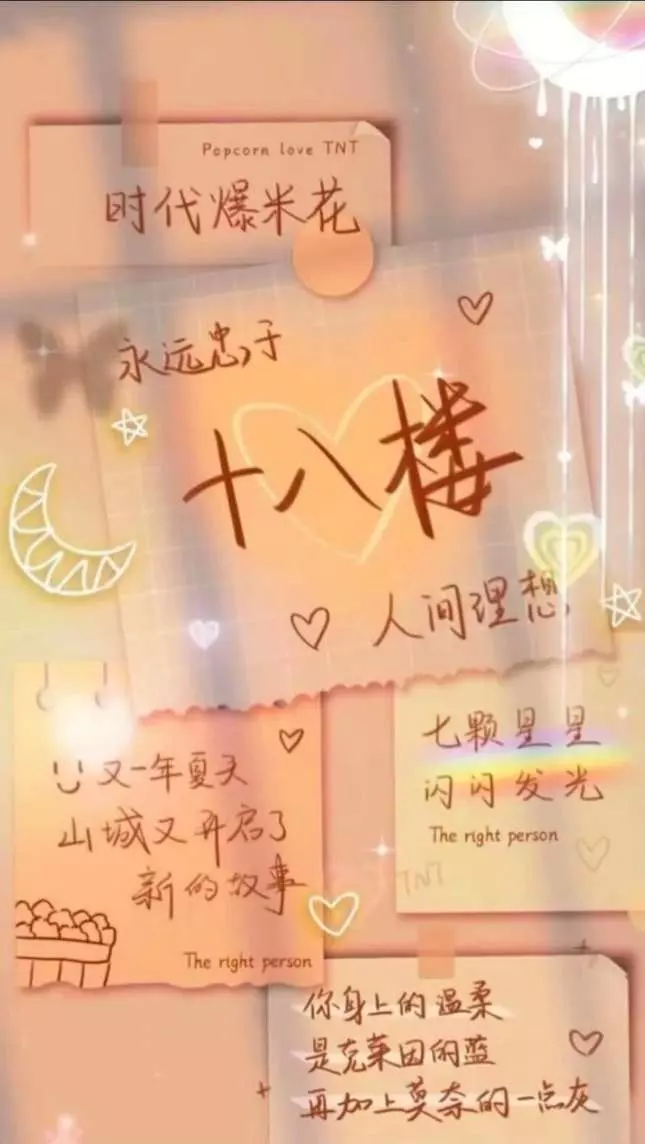 Popcorn love TNT
时代爆米花
永远忠于
十八楼
人间理想
七颗星星
闪闪发光
The right person
TNT
又一年夏天
山城又开启了
新的故事
The right person
你身上的温柔
是克莱因的蓝
再加上莫奈的一点灰